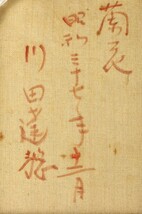 蘭花
昭和三十七年十二月
川田